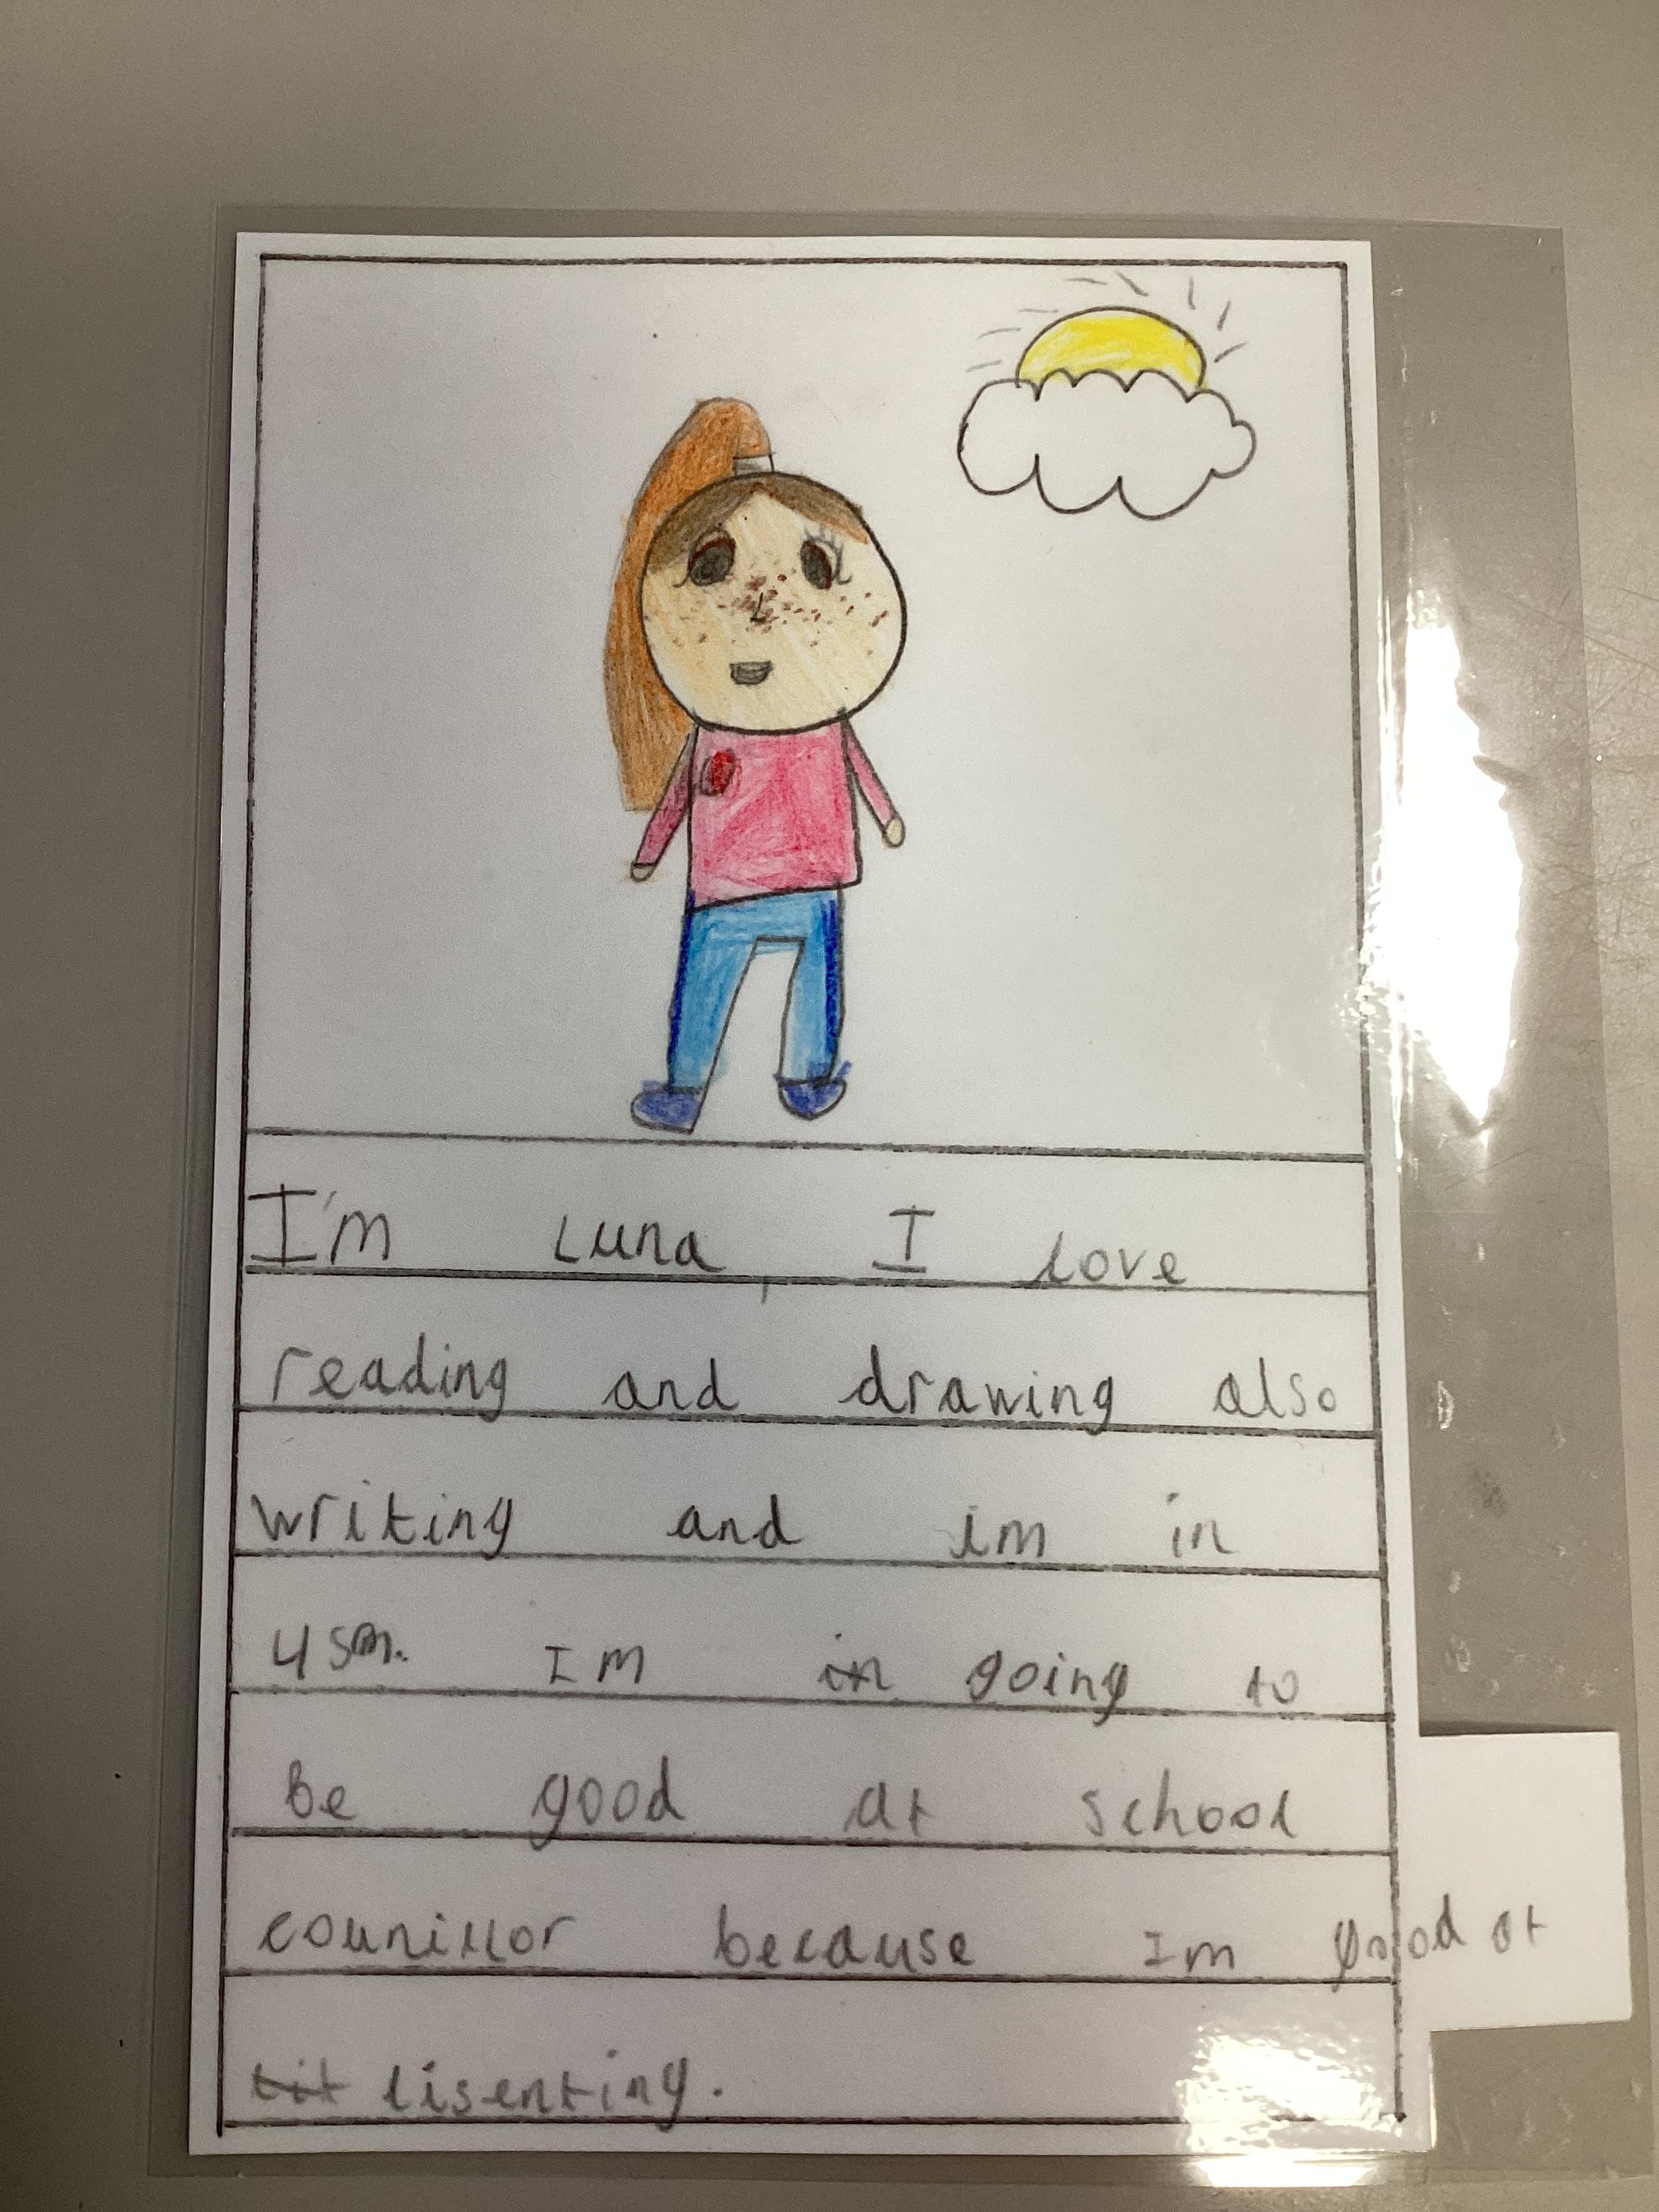 I'm Luna, I love
reading and drawing also
writing and im in
4SM. Im in going to
be good at school
counillor because Im good at
tit lisenting.